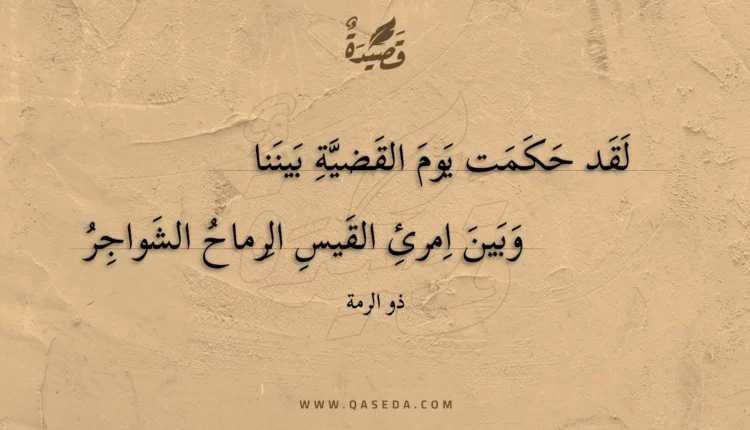 قَصِيْدَةٌ
لَقَد حَكَمَت يَومَ القَضيَّةِ بَينَنا
وَبَينَ اِمرئِ القَيسِ الرِماحُ الشَواجِرُ
ذو الرمة
WWW.QASEDA.COM